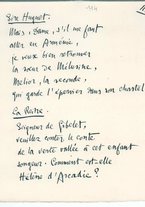 Sire Huguet.
Mais, Dame, s'il me faut
aller en Arménie,
je veux bien retrouver
la sœur de Mélusine,
Mélior, la seconde,
qui garde l'épervier dans son chastel
La Reine
Seigneur de Gibelet,
veuillez conter le conte
de la verte vallée à cet enfant
songeur. Comment est-elle
Hélène d'Arcadie ?